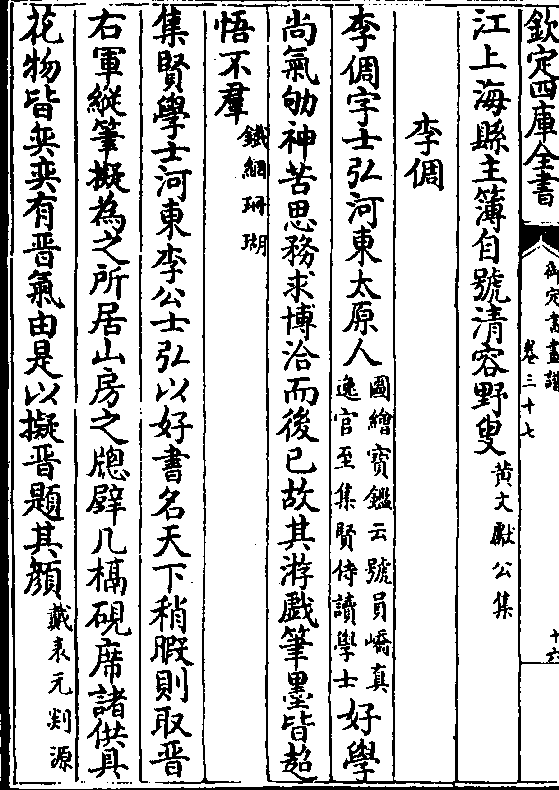 欽定四庫全書
御定書畫譜
卷三十七
十六
江上海縣主簿自號清容野叟黃文獻公集
李倜
李倜字士弘河東太原人圖繪寶鑑云號員嶠真逸官至集賢侍讀學士好學
尚氣劬神苦思務求博洽而後已故其游戲筆墨皆超
悟不羣鐵網珊瑚
集賢學士河東李公士弘以好書名天下稍暇則取晋
右軍縱筆擬為之所居山房之牕壁几槅硯席諸供具
花物皆奕奕有晋氣由是以擬晋題其顔戴表元剡源